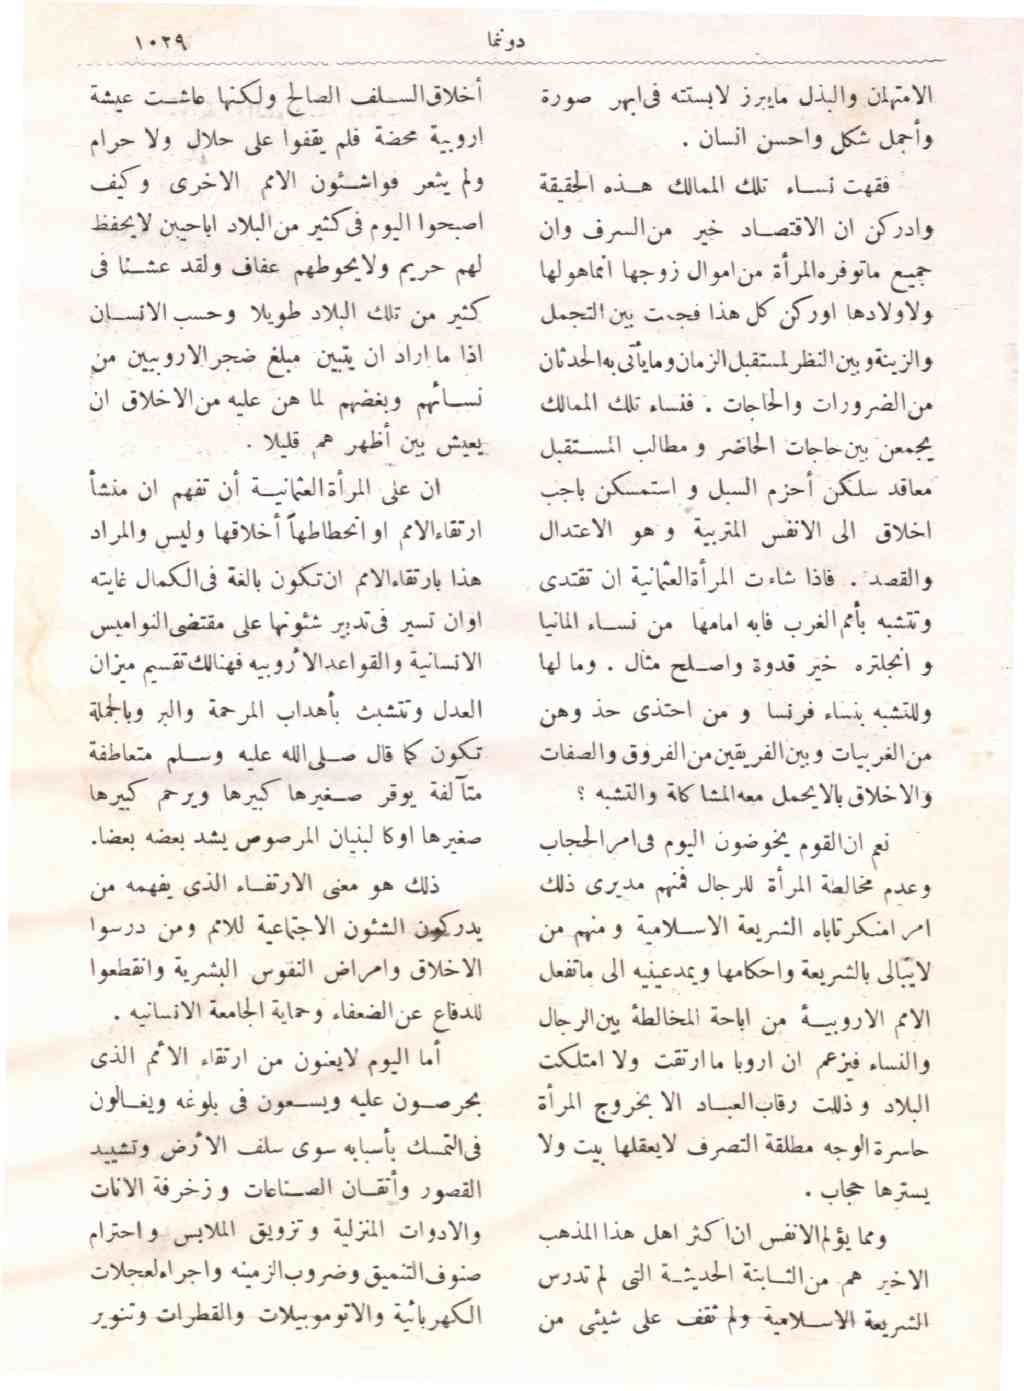 دونما
١٠٢٩
الامتهان والبذل مايبرز لابسته فى ابهر صورة
وأجمل شكل واحسن انسان .
فقهت نساء تلك الممالك هذه الحقيقة
وادركن ان الاقتصاد خير من السرف وان
جميع ماتوفره المرأة من اموال زوجها انماهولها
ولاولادها اوركن كل هذا فجمعت بين التجمل
والزينة وبين النظر لمستقبل الزمان ومايأتى به الحدثان
من الضرورات والحاجات . فنساء تلك الممالك
يجمعن بين حاجات الحاضر و مطالب المستقبل
معاقد سلكن أحزم السبل و استمسكن باجب
اخلاق الى الانفس المتربية و هو الاعتدال
والقصد . فاذا شاءت المرأة العثمانية ان تقتدى
وتتشبه بأمم الغرب فابه امامها من نساء المانيا
و انجلتره خير قدوة واصلح مثال . وما لها
وللتشبه بنساء فرنسا و من احتذى حذ وهن
من الغربيات وبين الفريقين من الفروق والصفات
والاخلاق بالايحمل معه المشاكلة والتشبه ؟
نعم ان القوم يخوضون اليوم فى امر الحجاب
وعدم مخالطة المرأة للرجال فمنهم مديرى ذلك
امرا منكر تاباه الشريعة الاسلامية و منهم من
لايبالى بالشريعة واحكامها ويمدعينيه الى ماتفعل
الامم الاروبية من اباحة المخالطة بين الرجال
والنساء فيزعم ان اروبا ما ارتقت ولا امتلكت
البلاد و ذللت رقاب العباد الا بخروج المرأة
حاسرة الوجه مطلقة التصرف لايعقلها بيت ولا
يسترها حجاب .
ومما يؤلم الانفس ان اكثر اهل هذا المذهب
الاخير هم من النابتة الحديثة التى لم تدرس
الشريعة الاسلامية ولم تقف على شيئى من
أخلاق السلف الصالح ولكنها عاشت عيشة
اروبية محضة فلم يقفوا على حلال ولا حرام
ولم يثعر فواشئون الامم الاخرى وكيف
اصبحوا اليوم فى كثير من البلاد اباحيين لايحفظ
لهم حريم ولايحوطهم عفاف ولقد عشنا فى
كثير من تلك البلاد طويلا وحسب الانسان
اذا ما اراد ان يتبين مبلغ ضجر الاروبيين من
نسائهم وبغضهم لما هن عليه من الاخلاق ان
يعيش بين أظهر هم قليلا .
ان على المرأة العثمانية أن تفهم ان منشأ
ارتقاء الامم او انحطاطها أخلاقها وليس والمراد
هذا بارتقاء الامم ان تكون بالغة فى الكمال غايته
اوان تسير فى تدبير شئونها على مقتضى النواميس
الانسانية والقواعد الأروبيه فهنالك تقسيم ميزان
العدل وتتشبث بأهداب المرحمة والبر وبالجملة
تكون كما قال صلى الله عليه وسلم متعاطفة
متآلفة يوقر صغيرها كبيرها ويرحم كبيرها
صغيرها اوكا لبنيان المرصوص يشد بعضه بعضا.
ذلك هو معنى الارتقاء الذى يفهمه من
يدركون الشئون الاجتماعية للاثم ومن درسوا
الاخلاق وامراض النفوس البشرية وانقطعوا
للدفاع عن الضعفاء وحماية الجامعة الانسانيه .
أما اليوم لايعنون من ارتقاء الأمم الذى
يحرصون عليه ويسعون فى بلوغه ويغالون
فى التمسك بأسبابه سوى سلف الأرض وتشييد
القصور وأتقان الصناعات و زخرفة الاثاث
والادوات المنزلية و تزويق الملابس و احترام
صنوف التنميق وضروب الزمينه واجراءلعجلات
الكهربائية والاتوموبيلات والقطرات وتنوير